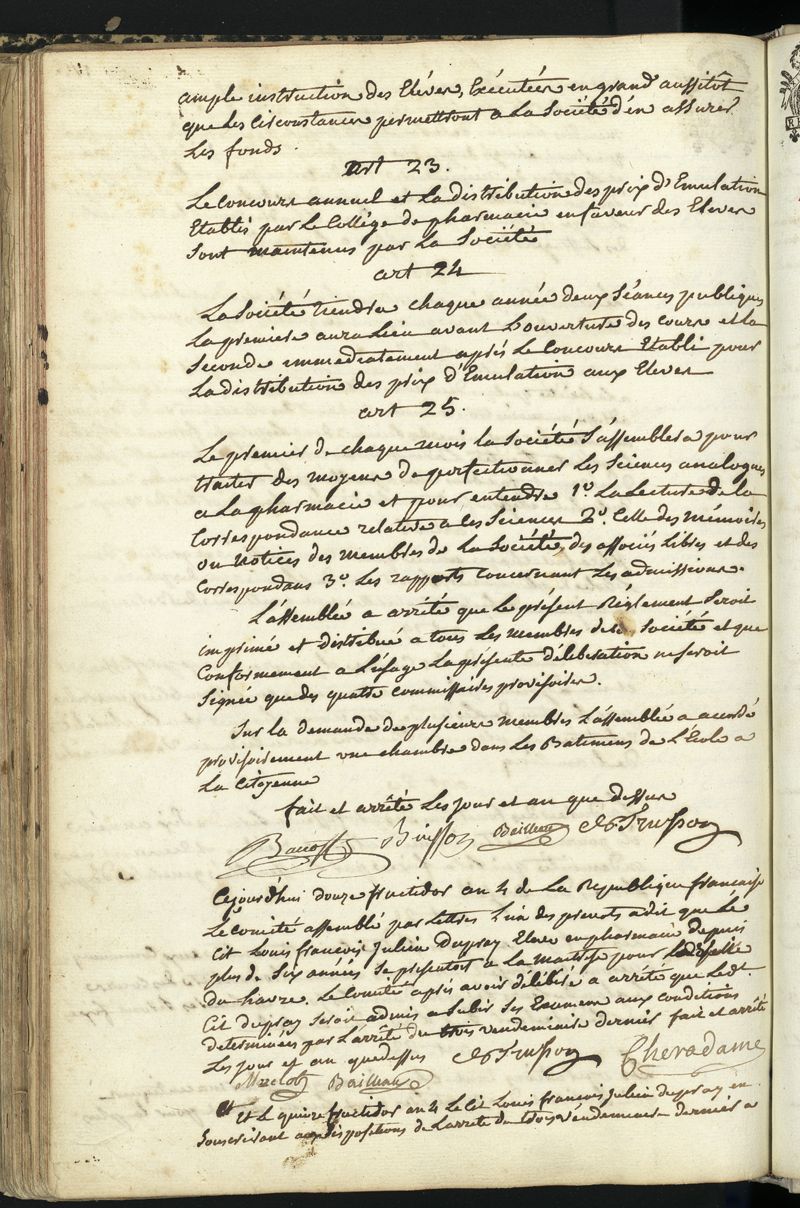 ample instruction des Eléves, Exécutées en grand aussitôt
que les circonstances permettront a la Société d'en assurer
les fonds.
art 23.
Le Concours annuel et la distribution des prix d'Emulation
Etablis par le Collége de pharmacie en faveur des Eleves
sont maintenus par la Société
art 24
La Société tiendra chaque année deux séances publiques
la premiere aura lieu avant l'ouverture des cours et la
seconde immediatement aprés le Concours Etabli pour
la distribution des prix d'Emulation aux Eleves
art 25.
Le premier de chaque mois la Société s'assemblera pour
traiter des moyens de perfectionner les Sciences analogues
a la pharmacie et pour entendre 1º. la lecture de la
Correspondance relative a ces Sciences 2º. Celle des Mémoires
ou Notices des Membres de la Société, des associés libres et des
Correspondans 3º. les rapports concernant les admissions.
L'assemblée a arrété que le présent Réglement seroit
imprimé et distribué a tous les membres de la Société et que
Conformement a l'usage la présente délibération ne seroit
signée que des quatre commissaires provisoires.
Sur la demande de plusieurs membres l'assemblée a acordé
provisoirement une chambre dans les Batimens de l'Ecole a
la Citoyenne
fait et arrêté les jour et an que dessus
Buisson Bailleau Trusson
Cejourd'hui douze fructidor an 4 de la Republique francaise
le comité assemblé par lettres l'un des prevots a dit que le
Cit Louis francois Julien dupray Eleve en pharmacie depuis
plus de six années se presentoit a la maitrise pour la Ville
du havre. le Comité aprés avoir délibéré a arrété que led.
Cit dupray seroit admis a subir ses Examens aux conditions
determinées par l'arrété du trois vendemiaire dernier fait et arrété
les jour et an que dessus Trusson Cheradame
Bailleau
Et le quinze fructidor an 4 le Cit Louis francois Julien dupray en
souscrivant aux dispositions de l'arrete du trois vendemiaire dernier a